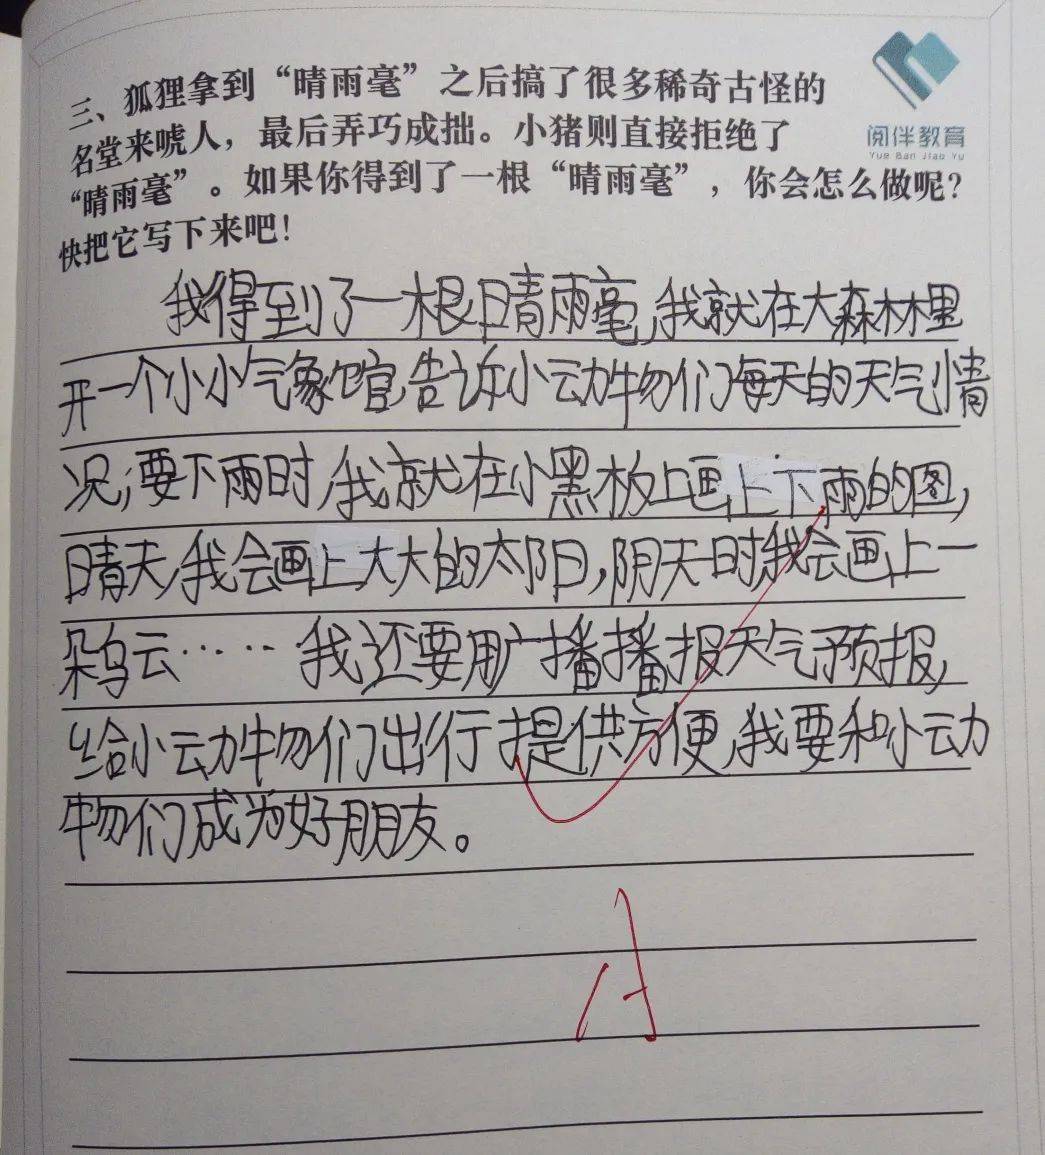 三、狐狸拿到“晴雨毫”之后搞了很多稀奇古怪的
名堂来唬人，最后弄巧成拙。小猪则直接拒绝了
“晴雨毫”。如果你得到了一根“晴雨毫”，你会怎么做呢？
快把它写下来吧！
阅伴教育
Yue Ban Jiao Yu
我得到了一根晴雨毫,我就在大森林里
开一个小小气象馆,告诉小动物们每天的天气情
况,要下雨时,我就在小黑板上画上下雨的图,
晴天,我会画上大大的太阳,阴天时我会画上一
朵乌云……我还要用广播播报天气预报,
给小动物们出行提供方便,我要和小动
物们成为好朋友。
A